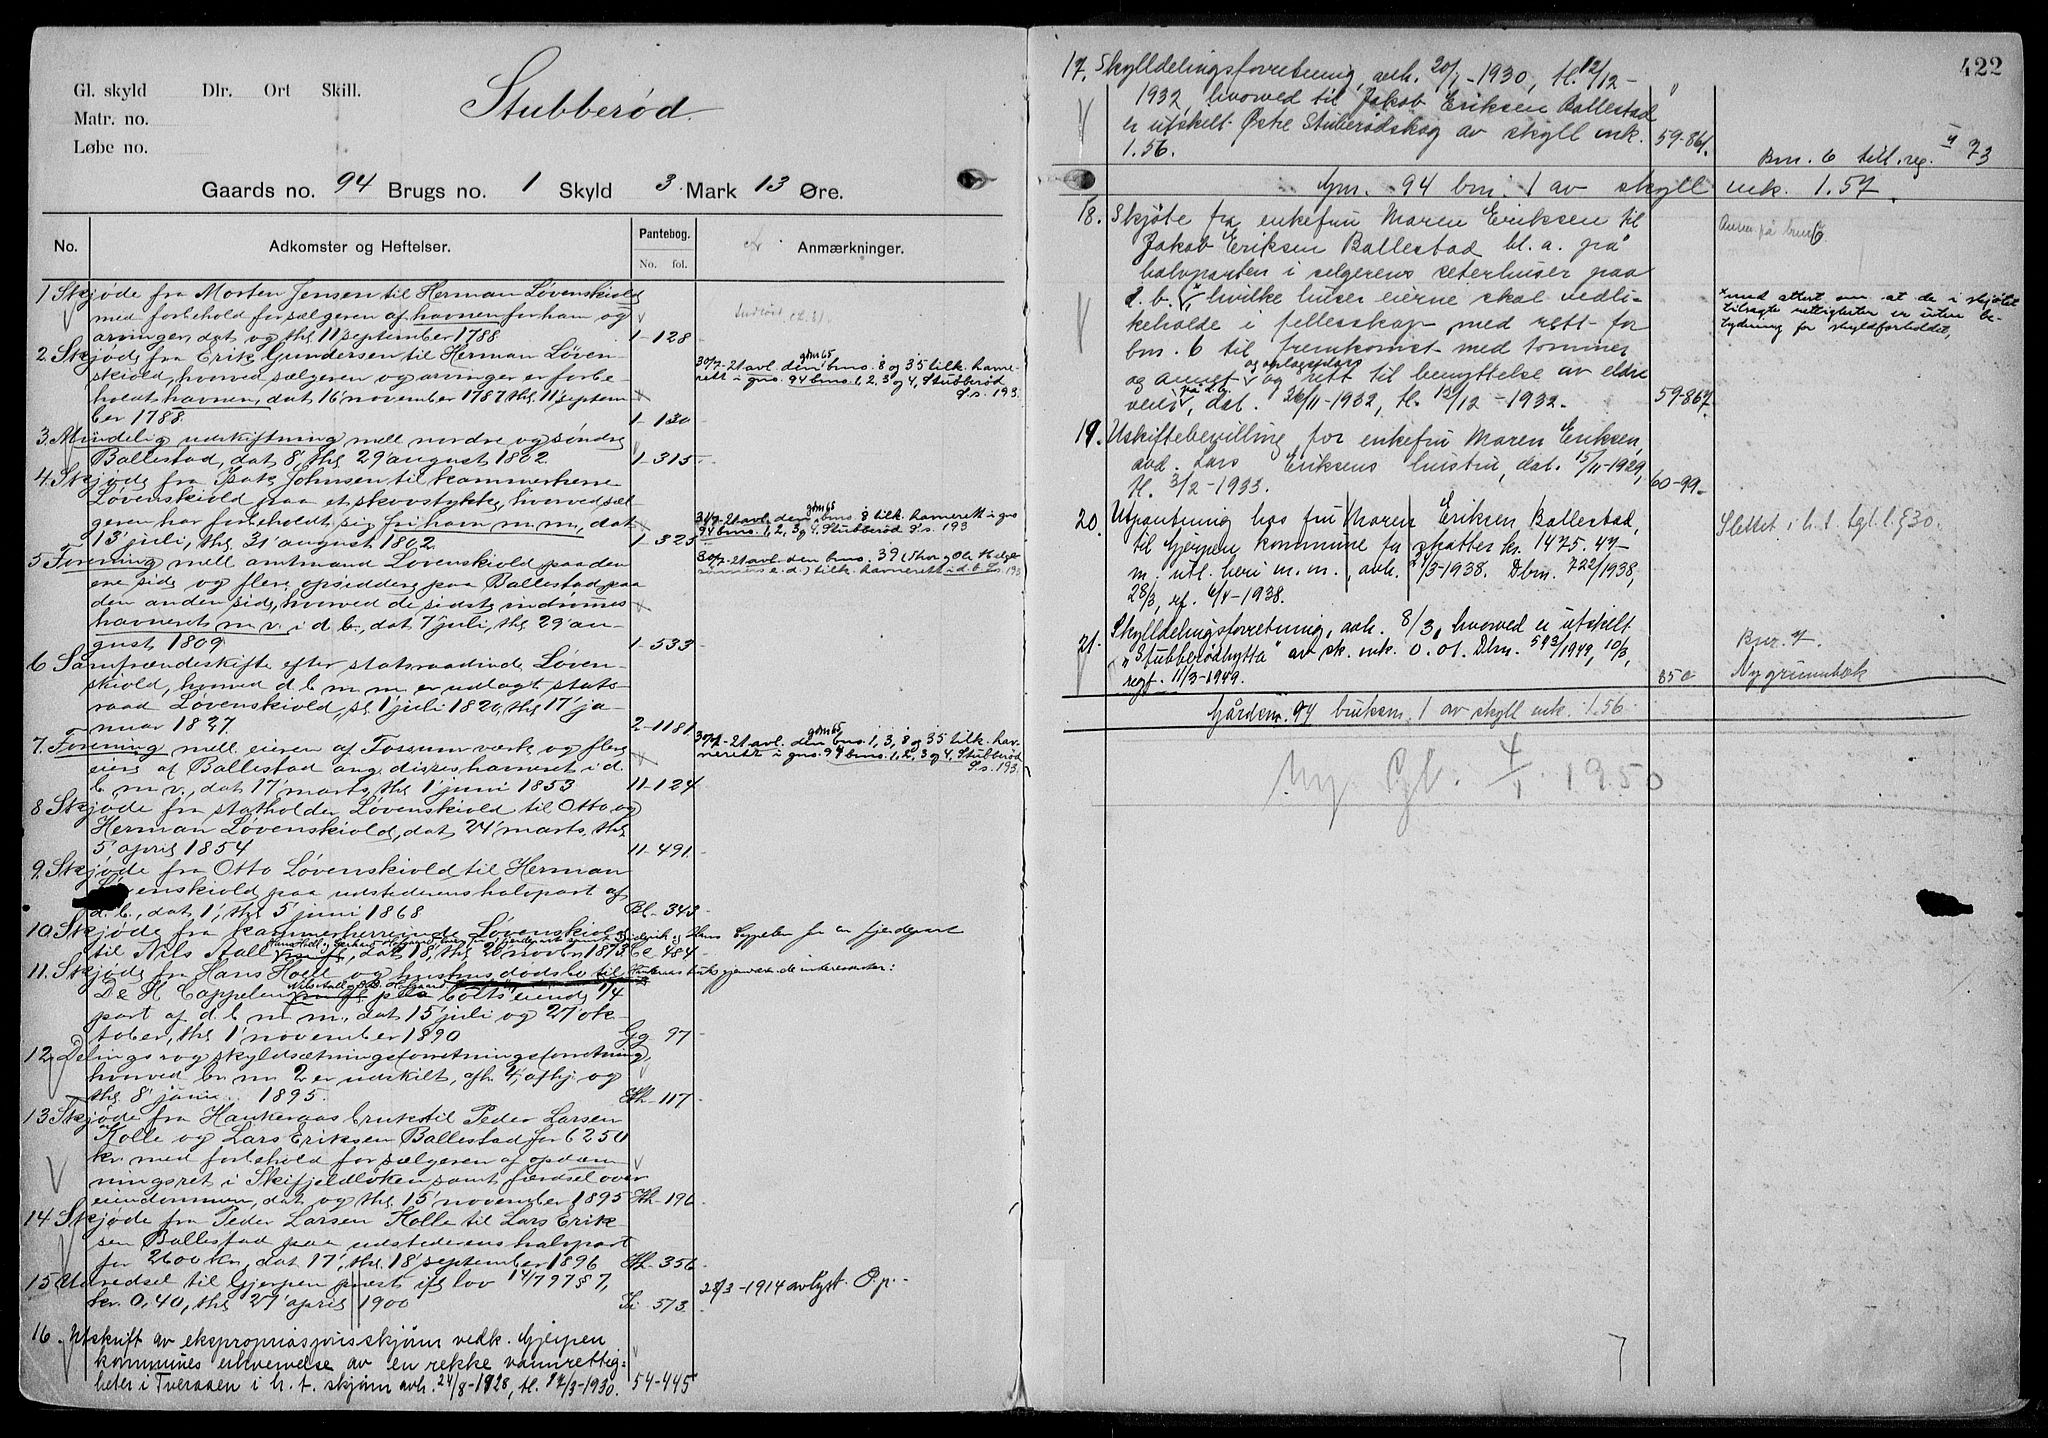 Gl. skyld Dlr. Ort Skill.
Matr. no.
Løbe no.
Stubberød.
Gaards no. 94 Brugs no. 1 Skyld 3 Mark 13 Øre.
No. Adkomster og Heftelser. Pantebog. No. fol. Anmærkninger.
1 Skjøde fra Morten Jensen til Herman Løvenskiold
med forbehold for sælgeren af havnen for ham og
arvinger, dat og thl 11 september 1788 1-128
2. Skjøde fra Erik Gundersen til Herman Løven-
skiold, hvorved sælgeren og arvinger er forbe-
holdt havnen, dat 16 november 1787 thl 11 septem-
ber 1788. 1-130
30/7-21 avl. den gbm 65 bms. 8 og 35 tilk. havne-
rett i gns. 94 bms. 1, 2, 3 og 4, Stubberød
S.s. 193
3. Mindelig udskiftning mell nordre og søndre
Ballestad, dat 8, thl 29 august 1802 1-315
4. Skjøde fra Isak Johnsen til kammerherre
Løvenskiold paa et skovstykke, hvorved sæl-
geren har forbeholdt sig fri havn m. m., dat
13 juli, thl 31 august 1802. 1-325
30/7-21 avl. den gbm 65 bms 8 tilk. havnerett i gns
94 bms. 1, 2, 3 og 4, Stubberød S.s. 193
5 Forening mell amtmand Løvenskiold paa den
ene side og flere opsiddere paa Ballestad paa
den anden side, hvorved de sidste indrømmes
havneret m. v. i d. b., dat 7 juli, thl 29 au-
gust 1809 1-533
30/7-21 avl. den bms. 39 (Thor og Ole Helge-
sønners e.d.) tilk. havnerett i d. b. S.s. 193
6 Samfrændeskifte efter statsraadinde Løven-
skiold, hvorved d. b. m. m. er udlagt stats-
raad Løvenskiold, sl 1 juli 1820, thl 17 ja-
nuar 1827. 2-1181
7. Forening mell eieren af Fossum værk og flere
eiere af Ballestad ang. disses havneret i d.
b. m. v., dat 17 marts, thl 1 juni 1853 11-124
30/7-21 avl. den gbm 65 bms. 1, 3, 8 og 35 tilk. hav-
nerett i gns. 94 bms. 1, 2, 3 og 4, Stubberød
S.s. 193
8 Skjøde fra statholder Løvenskiold til Otto og
Herman Løvenskiold, dat 24 marts, thl
5 april 1854 11-491
9. Skjøde fra Otto Løvenskiold til Herman
Løvenskiold paa udstederens halvpart af
d. b., dat 1, thl 5 juni 1868 Bb-343
10 Skjøde fra kammerherreinde Løvenskiold
til Nils Aall, dat 18, thl 20 novbr 1873 Cc 484
11. Skjøde fra Hans Holl og hustrus dødsbo til
De H Cappelen paa Cotts eiende 1/4
part af d. b. m. m., dat 15 juli og 27 ok-
tober, thl 1 november 1890 Gg 97
12. Delings og skyldsætningsforretningsforretning,
hvorved br. nr. 2 er udskilt, afh. 4, afhj og
thl 8 juni 1895. Hh-117
13 Skjøde fra Hankeraas bruk til Peder Larsen
Kolle og Lars Eriksen Ballestad for 6250
kr. med forbehold for sælgeren af opdæm-
ningsret i Skifjeldløken samt færdsel over
eiendommen, dat og thl 15 november 1895 Hh-196
14 Skjøde fra Peder Larsen Kolle til Lars Erik-
sen Ballestad paa udstederens halvpart
for 2600 kr, dat 17, thl 18 september 1896 Hh-356
15 Udredsel til Gjerpen prest ifl lov 14/7 97 § 7,
kr. 0,40, thl 27 april 1900 Ii 573.
28/3-1914 avlyst. O.p.-
16. Utskrift av ekspropriasjonsskjønn vedk. Gjerpen
kommunes erhvervelse av en rekke vannrettig-
heter i Tveraaen i h. t. skjønn avh. 24/8-1928, tl. 17/3-1930. 54-445
422
17. Skylldelingsforretning, avh. 20/1-1930, tl. 12/12-
1932, hvorved til Jakob Eriksen Ballestad
er utskilt Østre Stuberødskog av skyll mk.
1.56. 59-864. Bnr. 6 till. reg. II 73
Gnr. 94 bnr. 1 av skyll mk. 1.57.
18. Skjøte fra enkefru Maren Eriksen til
Jakob Eriksen Ballestad bl. a. på
halvparten i selgerens seterhuser paa
d. b. x hvilke huser eierne skal vedli-
keholde i fellesskap med rett for
bnr. 6 til fremkomst med tømmer
og annet og oplagsplass og rett til benyttelse av eldre
veier på d.b., dat. 26/11-1932, tl. 12/12-1932. 59-867.
Anm. på bnr 6.
x med attest om at de i skjøtet
tillagte rettigheter er uten be-
tydning for skyldforholdet,
19. Uskiftebevilling for enkefru Maren Eriksen,
avd. Lars Eriksens hustru, dat. 15/11-1929,
tl. 3/2-1933. 60-99.
20. Utpantning hos fru Maren Eriksen Ballestad,
til Gjerpen kommune for skatter kr. 1475.47
m. utl. heri m. m., avh. 4/3-1938. Dbnr. 722/1938,
28/3, ref. 6/4-1938.
Slettet i h. t. tgl. l. § 30.
21. Skylldelingsforretning, avh. 8/3, hvorved er utskilt
"Stubberødhytta" av sk. mk. 0.01. Dbnr. 593/1949, 10/3,
regf. 11/3-1949. 85a
Bnr. 7.
Ny grunnbok
Gårdsnr. 94 bruksnr. 1 av skyll mk. 1.56.
Ny Pgb. 4/1 1950